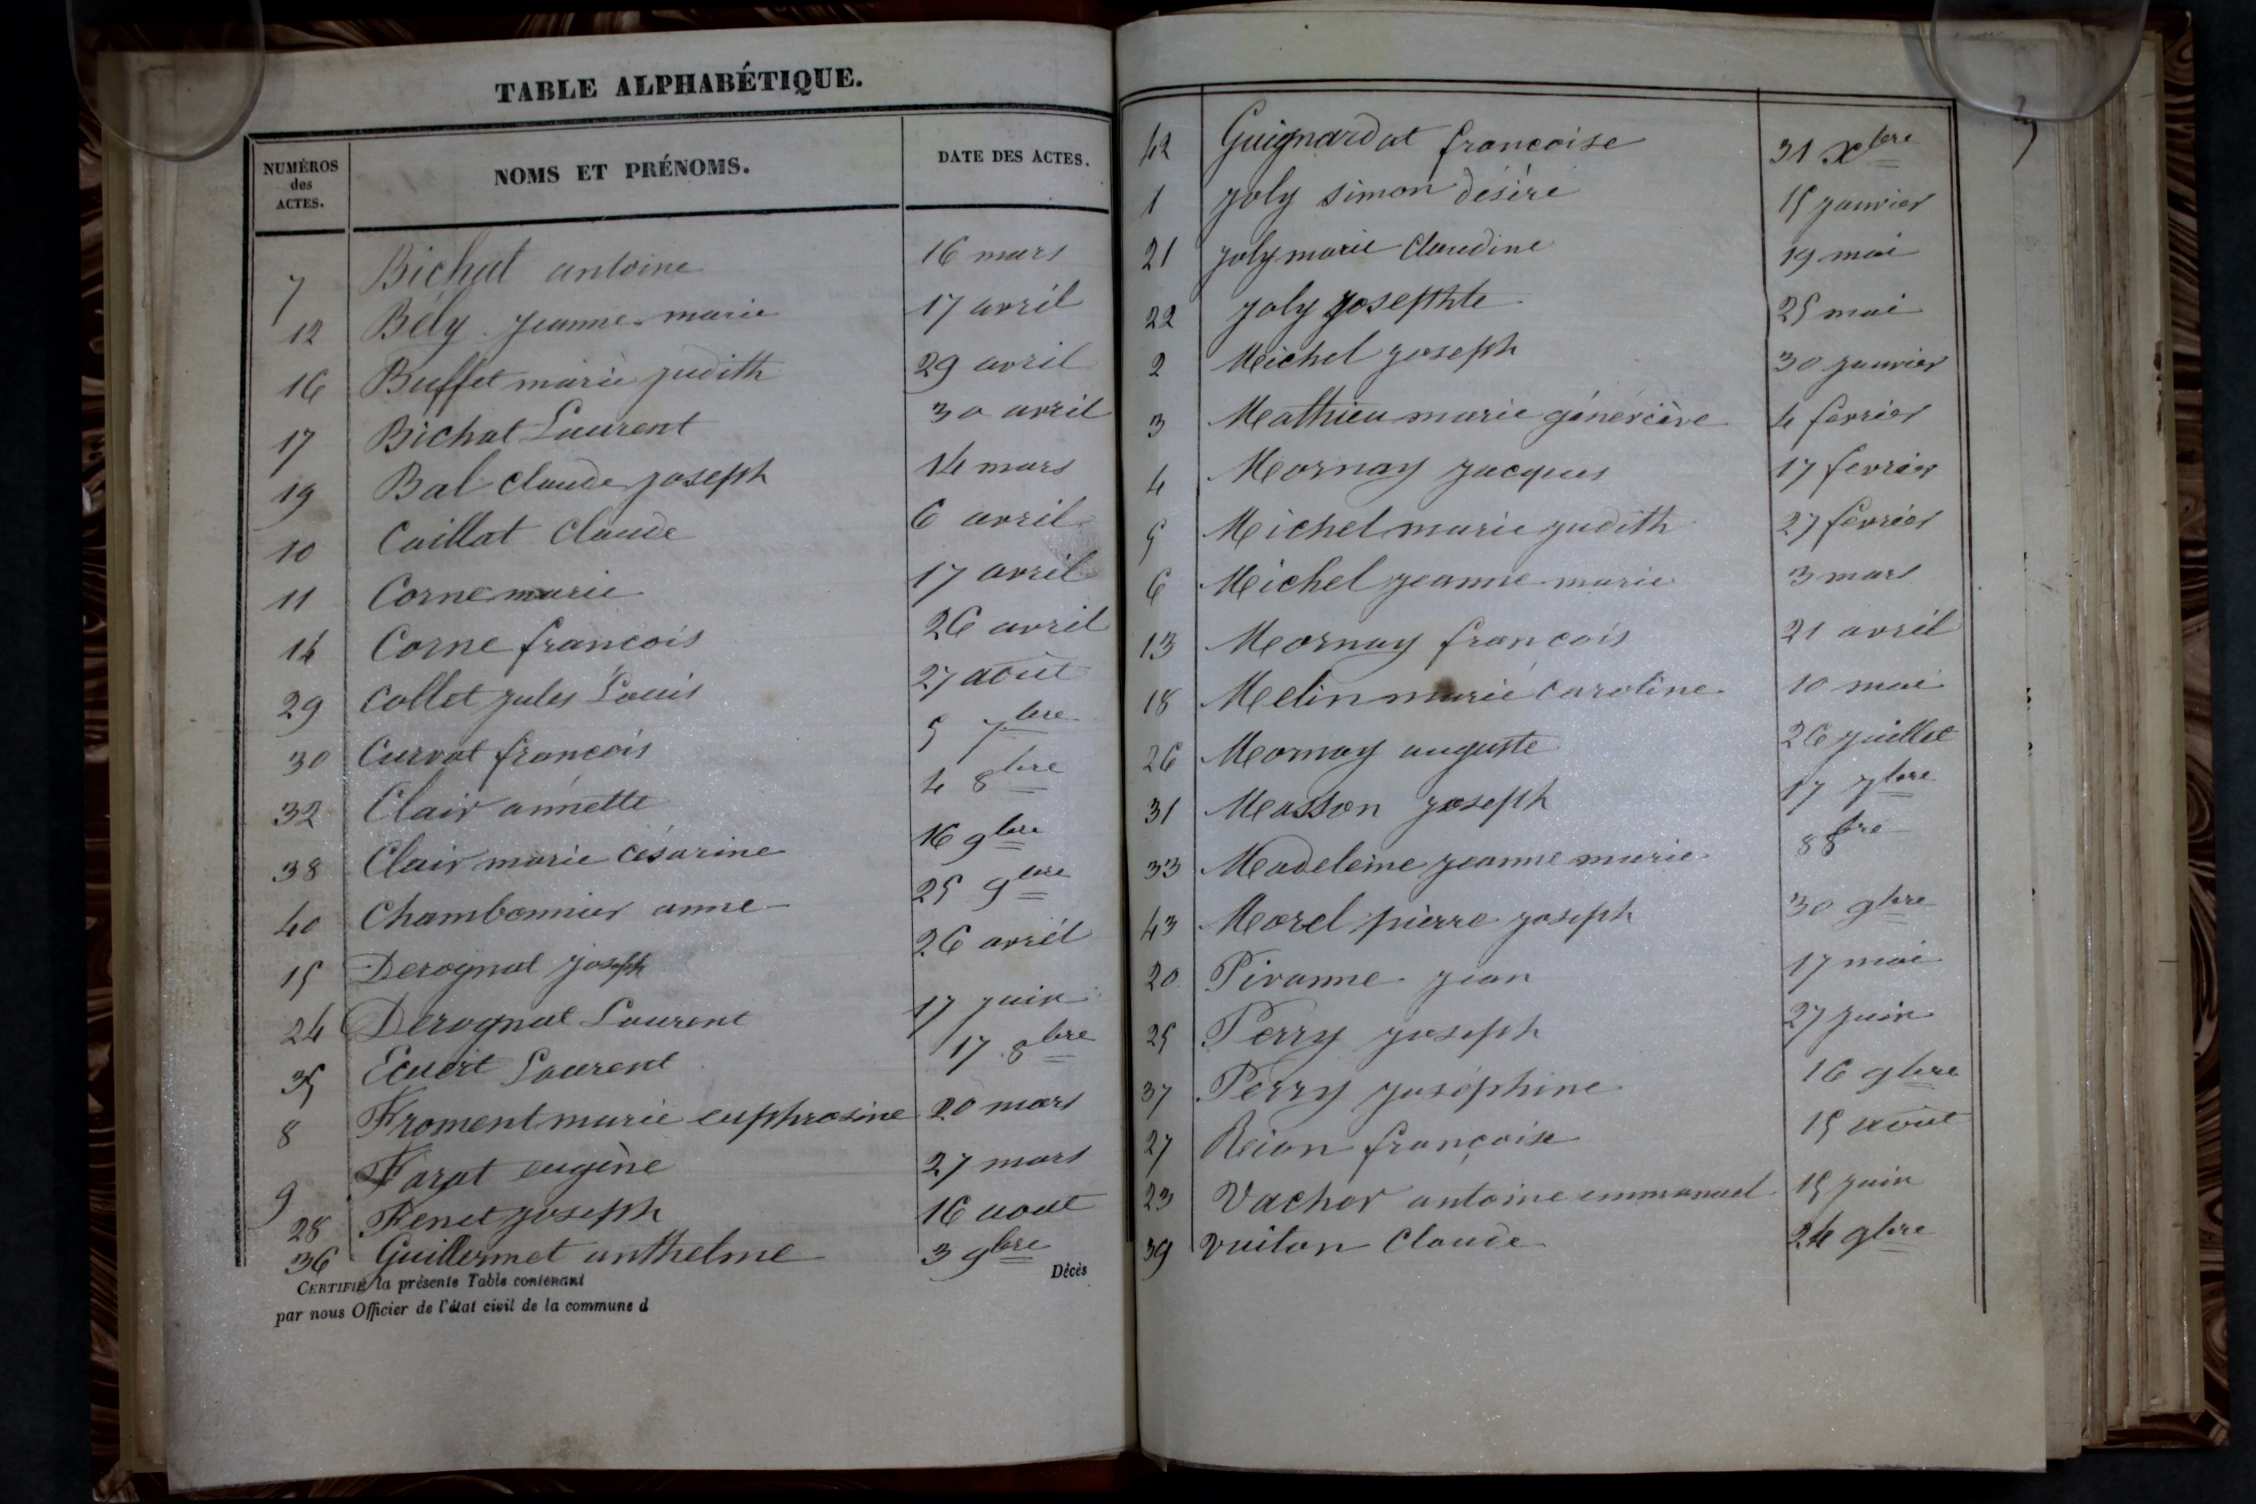 TABLE ALPHABÉTIQUE.
NUMÉROS des ACTES. NOMS ET PRÉNOMS. DATE DES ACTES.
7 Bichat antoine 16 mars
12 Bély jeanne marie 17 avril
16 Buffet marie judith 29 avril
17 Bichat Laurent 30 avril
19 Bal claude joseph 14 mars
10 Caillat Claude 6 avril
11 Corne marie 17 avril
14 Corne francois 26 avril
29 Collet jules Louis 27 août
30 Curvat francois 5 7bre
32 Clair annette 4 8bre
38 Clair marie césarine 16 9bre
40 Chambonnier anne 25 9bre
15 Derognat joseph 26 avril
24 Derognat Laurent 17 juin
35 Ecuert Laurent 17 8bre
8 Froment marie euphrosine 20 mars
9 Farat eugène 27 mars
28 Fenet joseph 16 aout
36 Guillermet anthelme 3 9bre
Décès
CERTIFIÉ la présente Table contenant
par nous Officier de l'état civil de la commune d
42 Guignardat francoise 31 Xbre
1 joly simon désiré 15 janvier
21 joly marie Claudine 19 mai
22 joly josephte 25 mai
2 Michel joseph 30 janvier
3 Mathieu marie généviève 4 fevrier
4 Mornay jacques 17 fevrier
5 Michel marie judith 27 fevrier
6 Michel jeanne marie 3 mars
13 Mornay francois 21 avril
18 Melin marie caroline 10 mai
26 Mornay auguste 26 juillet
31 Masson joseph 17 7bre
33 Madeleine jeanne marie 8 8bre
43 Morel pierre joseph 30 9bre
20 Pivanne jean 17 mai
25 Perry joseph 27 juin
37 Perry joséphine 16 9bre
27 Reion françoise 15 aout
23 Vachor antoine emmanuel 15 juin
39 Vuiton Claude 24 9bre